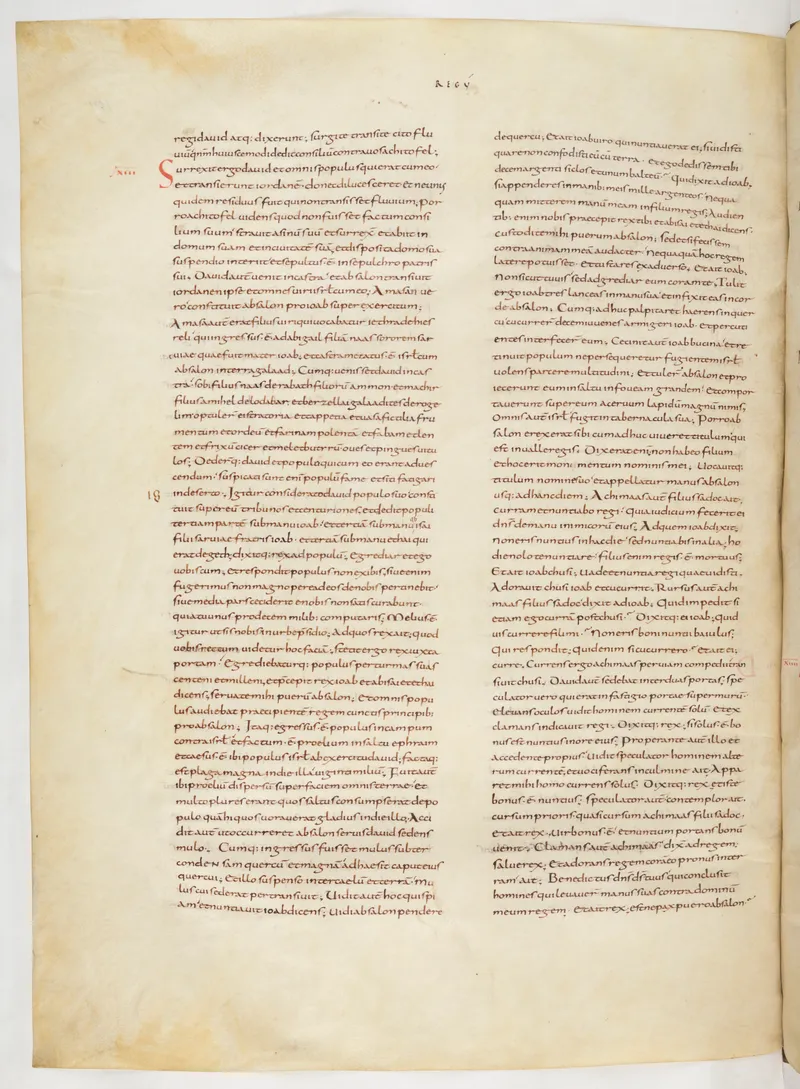 REGŪ
regi dauid atq: dixerunt; surgite transite cito flu
uiū qm̄ huiuscemodi dedit consiliū contra uos achitofel;
XIIII
Surrexit ergo dauid et omnis populus qui erat cum eo·
et transierunt iordanē· donec dilucesceret· et ne unus
quidem residuus fuit qui non transisset fluuium; por
ro achitofel uidens quod non fuisset factum consi
lium suum· strauit asinū suū et surrex̄ et abiit in
domum suam et in ciuitatē suā; et disposita domo sua
suspendio interiit· et sepultus ē in sepulchro patris
sui; Dauid autē uenit in castra· et absalon transiuit
iordanen ipse et omnes uiri isrl̄ cum eo; Amasan ue
ro constituit absalon pro ioab super exercitum;
Amasa autē erat filius uiri qui uocabatur iethra de hies
reli· qui ingressus ē ad abigail filiā naas sororem sar
uiae quae fuit mater ioab; et castrametatus ē isrl̄ cum
absalon in terra galaad; Cumq: uenisset dauid in cas
tra· sobi filius naas de rabath filiorū ammon· et machir
filius amihel de lodabar· et berzellai galaadites de roge
lim optuler̄ ei stratoria· et tappetia et uasa fictilia fru
mentum et ordeū et farinam· polentā et fabam et len
tem et frixū cicer et mel et butyrū oues et pingues uitu
los; Dederq: dauid et populo qui cum eo erant ad ues
cendum· suspicati sunt enī populū fame et siti fatigari
in deserto; Igitur considerato dauid populo suo consti
tuit super eū tribunos et centuriones· et dedit populi
tertiam partē sub manu ioab· et tertiā sub manu abisai
filii saruiae fratris ioab· et tertiā sub manu ethai qui
erat de geth; dixitq: rex ad populū; Egrediar et ego
uobiscum; et respondit populus non exibis; siue enim
fugerimus non magnopere ad eos de nobis pertinebit·
siue media pars ceciderit e nobis non satis curabunt·
quia tu unus pro decem milib: computaris; Melius ē
igitur ut sis nobis in urbe p̄sidio; Ad quos rex ait; quod
uobis rectum uidetur hoc faciā; stetit ergo rex iuxta
portam· Egrediebaturq: populus per turmas suas
centeni et milleni; et p̄cepit rex ioab et abisai et ethai
dicens; seruate mihi puerū absalon; Et omnis popu
lus audiebat praecipientē regem cunctis principib:
pro absalon; Itaq: egressus ē populus in campum
contra isrl̄· et factum ē proelium in saltu ephraim
et caesus ē ibi populus isrl̄ ab exercitu dauid; factaq:
est plaga magna in die illa uiginti miliū; Fuit autē
ibi proeliū dispersū super faciem omnis terrae· et
multo plures erant quos saltus consumpserat de po
pulo quā hi quos uorauerat gladius in die illa; Acci
dit autē ut occurreret absalon seruis dauid sedens
mulo; Cumq: ingressus fuisset mulus subter
condensam quercū et magnā adhaesit caput eius
quercui; et illo suspenso inter caelū et terrā· mu
lus cui sederat pertransiuit; Uidit autē hoc quispi
am et nuntiauit ioab dicens; Uidi absalon pendere
de quercu; Et ait ioab uiro qui nuntiauerat ei; si uidisti
quare non confodisti eū cū terra· et ego dedissem tibi
decem argenti siclos et unum balteū; Qui dixit ad ioab;
si appenderes in manib: meis mille argenteos· nequa
quam mitterem manū meam in filium regis; Audien
tib: enim nobis praecepit rex tibi et abisai et ethai dicens;
custodite mihi puerum absalon; sed et si fecissem
contra animam meā audacter· nequaquā hoc regem
latere potuisset· et tu stares ex aduerso; Et ait ioab;
Non sicut tu uis sed adgrediar eum coram te; Tulit
ergo ioab tres lanceas in manu sua· et infixit eas in cor
de absalon; Cumq: adhuc palpitaret haerens in quer
cu cucurrer̄ decem iuuenes armigeri ioab· et percuti
entes interfecer̄ eum; Cecinit autē ioab bucina· et re
tinuit populum ne persequeretur fugientem isrl̄
uolens parcere multitudini; Et tuler̄ absalon et pro
iecerunt eum in saltu in foueam grandem· et compor
tauerunt super eum aceruum lapidū magnū nimis;
Omnis autē isrl̄ fugit in tabernacula sua; Porro ab
salon erexerat sibi cum adhuc uiueret titulum qui
est in ualle regis; Dixerat enī non habeo filium
et hoc erit monimentum nominis mei; Uocauitq:
titulum nomine suo· et appellatur manus absalon
usq: ad hanc diem; Achimaas autē filius sadoc ait;
curram et nuntiabo regi· quia iudicium fecerit ei
dn̄s de manu inimicorū eius; Ad quem ioab dixit;
Non eris nuntius in hac die· sed nuntiabis in alia; ho
die nolo te nuntiare· filius enim regis ē mortuus;
Et ait ioab chusi; Uade et nuntia regi quae uidisti;
Adorauit chusi ioab et cucurrit; Rursus autē achi
maas filius sadoc dixit ad ioab; Quid impedit si
etiam ego currā post chusi· Dixitq: ei ioab; quid
uis currere fili mi· Non eris boni nuntii baiulus;
Qui respondit; Quid enim si cucurrero· Et ait ei;
curre; Currens ergo achimaas per uiam compendii tran
siuit chusi; Dauid autē sedebat inter duas portas; spe
culator uero qui erat in fastigio portae super murū·
eleuans oculos uidit hominem currentē solū· et ex
clamans indicauit regi; Dixitq: rex; si solus ē bo
nus est nuntius in ore eius; Properante autē illo et
accedente propius· Uidit speculator hominem alte
rum currentē; et uociferans in culmine ait· Appa
ret mihi homo currens solus; Dixitq: rex et iste
bonus ē nuntius; speculator autē contemplor ait·
cursum prioris quasi cursum achimaas filii sadoc·
Et ait rex; Uir bonus ē et nuntium portans bonū
uenit; Clamans autē achimaas dix̄ ad regem;
salue rex; Et adorans regem corā eo pronus in ter
ram ait; Benedictus dn̄s ds̄ tuus qui conclusit
homines qui leuauer̄ manus suas contra dominū
meum regem· Et ait rex; est ne pax puero absalon·